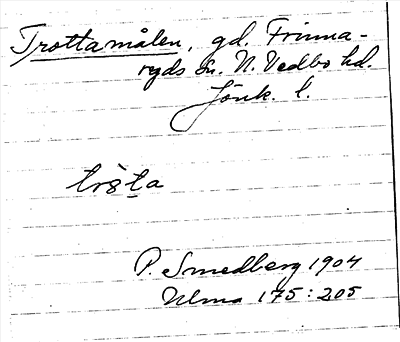 Trottamålen, gd. Frinna-
ryds sn. N. Vedbo hd.
Jönk. l.
P. Smedberg 1904
Ulma 175:205